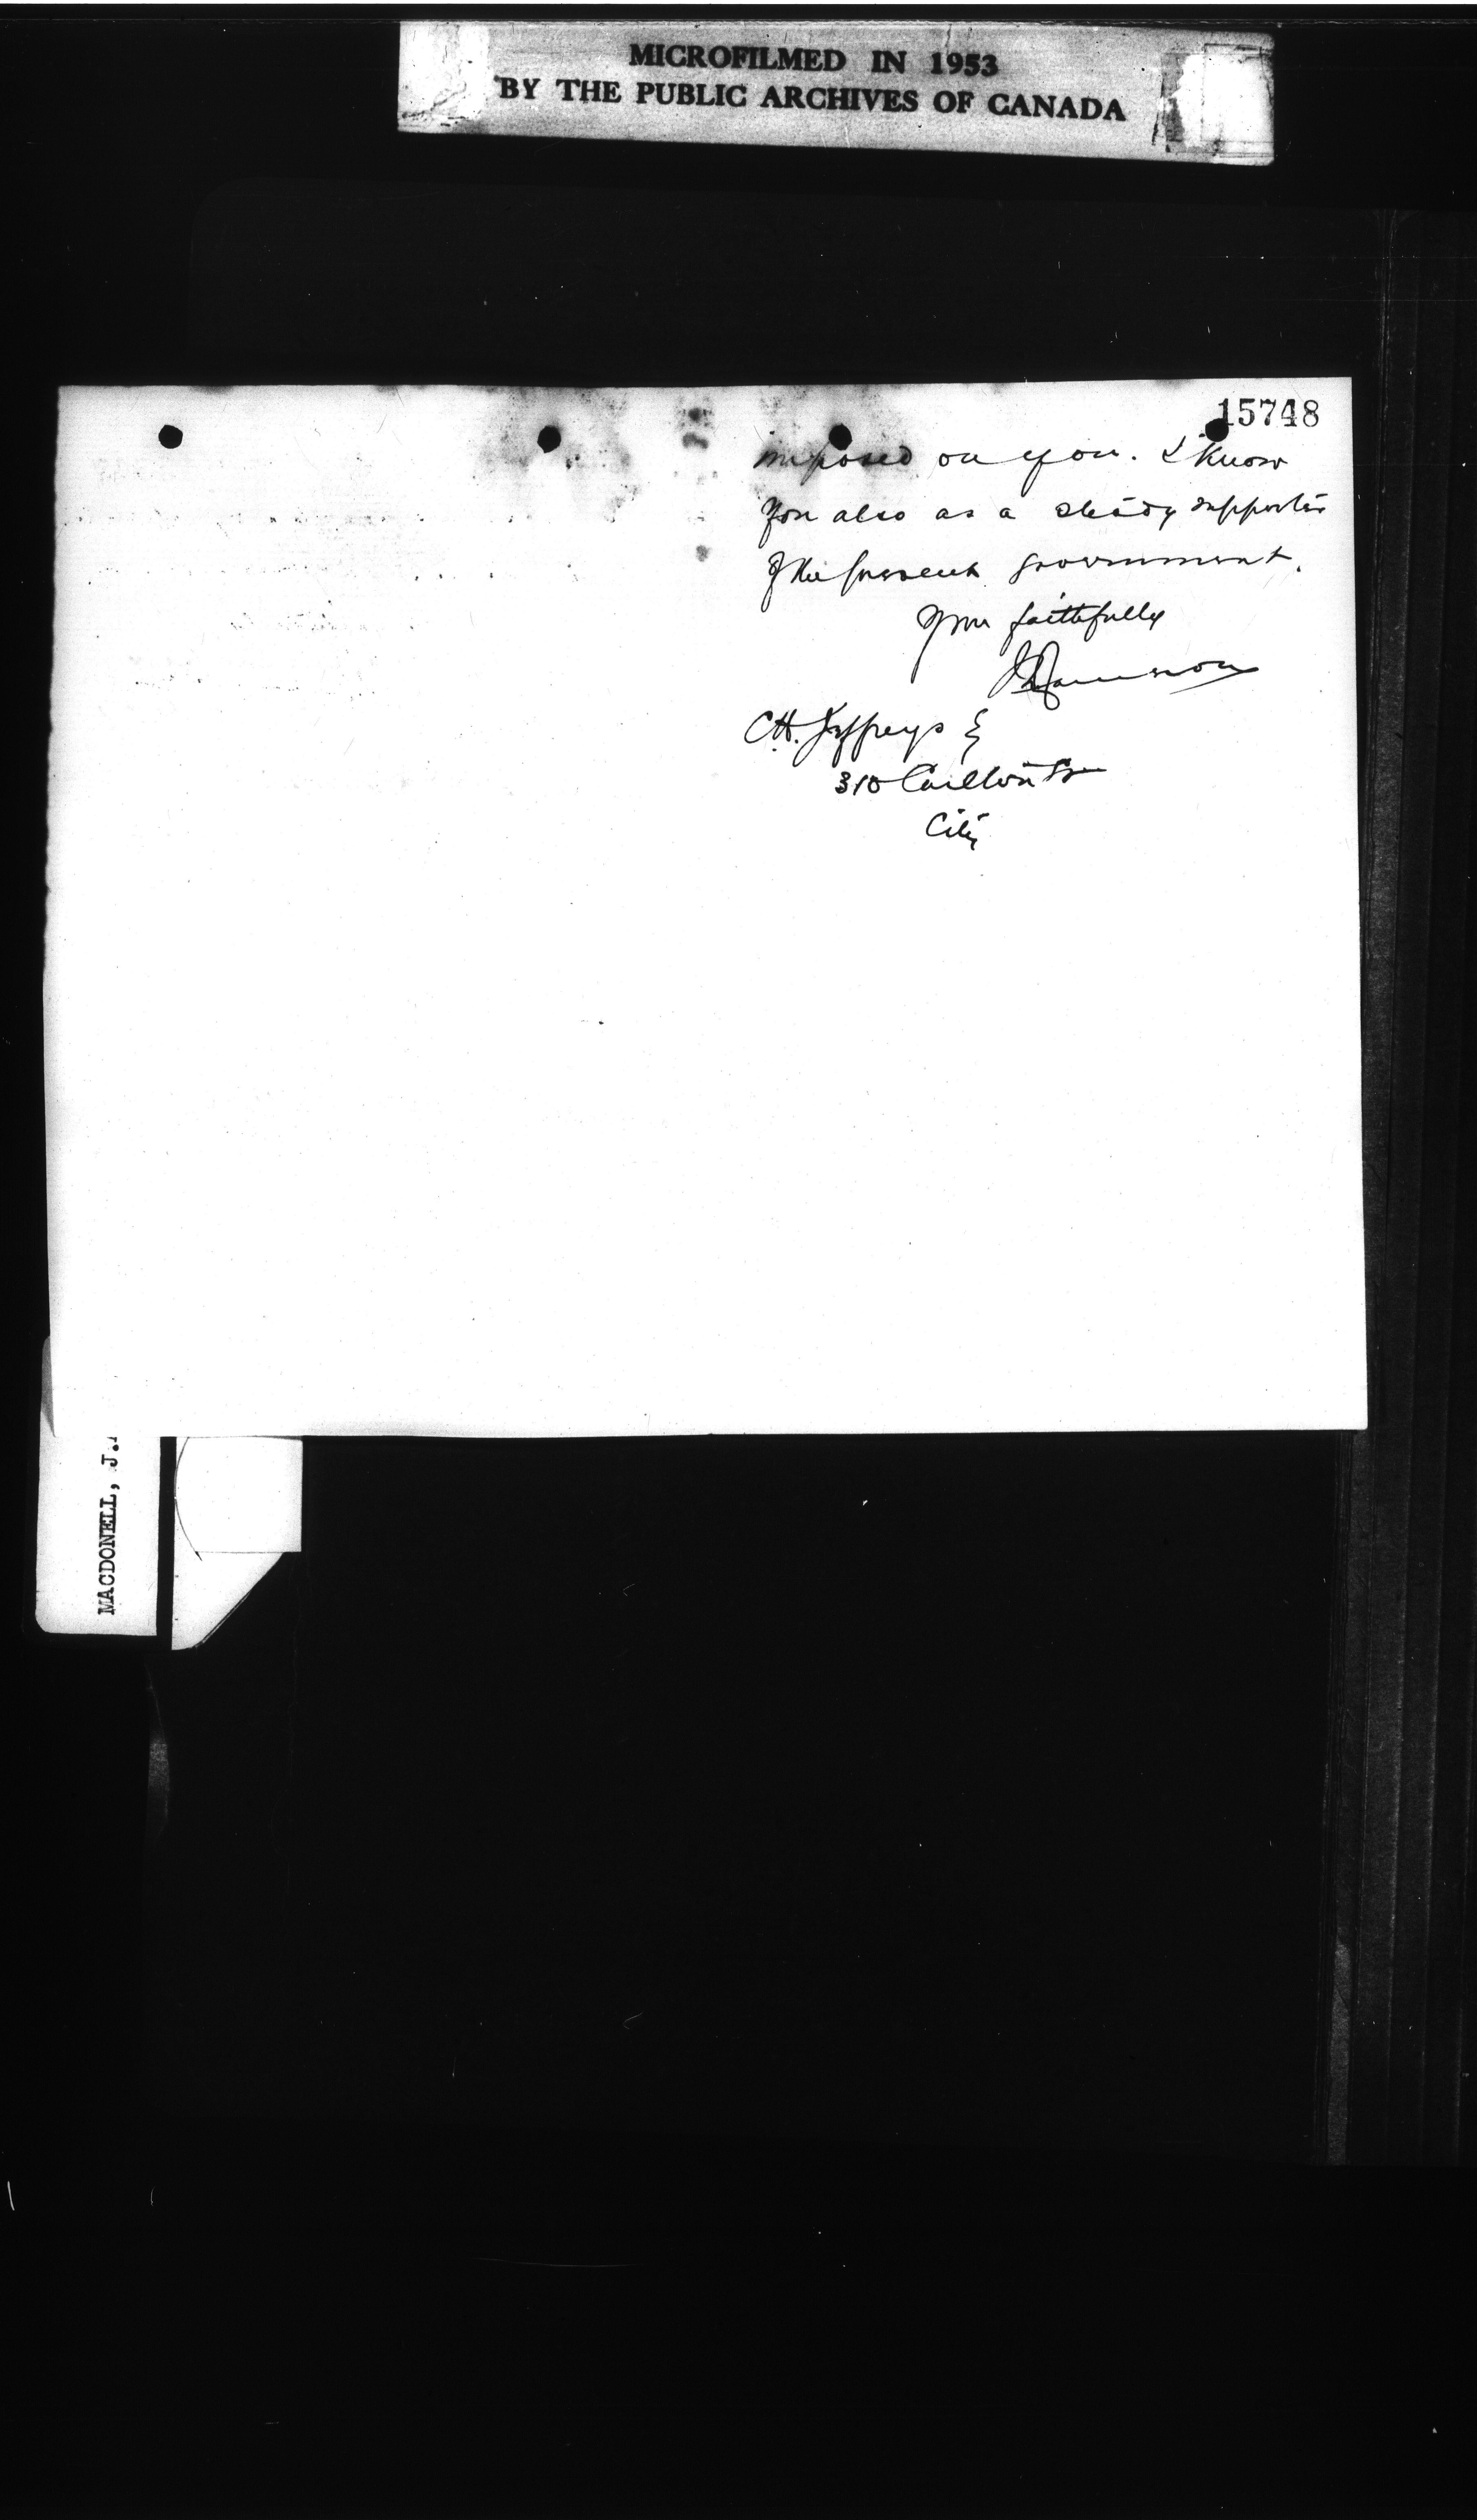 MICROFILMED IN 1953
BY THE PUBLIC ARCHIVES OF CANADA
15748
imposed on you. I know
you also as a steady supporter
of the present government.
Yours faithfully
C.H. Jeffreys
310 Carlton St
City
MACDONELL, J.